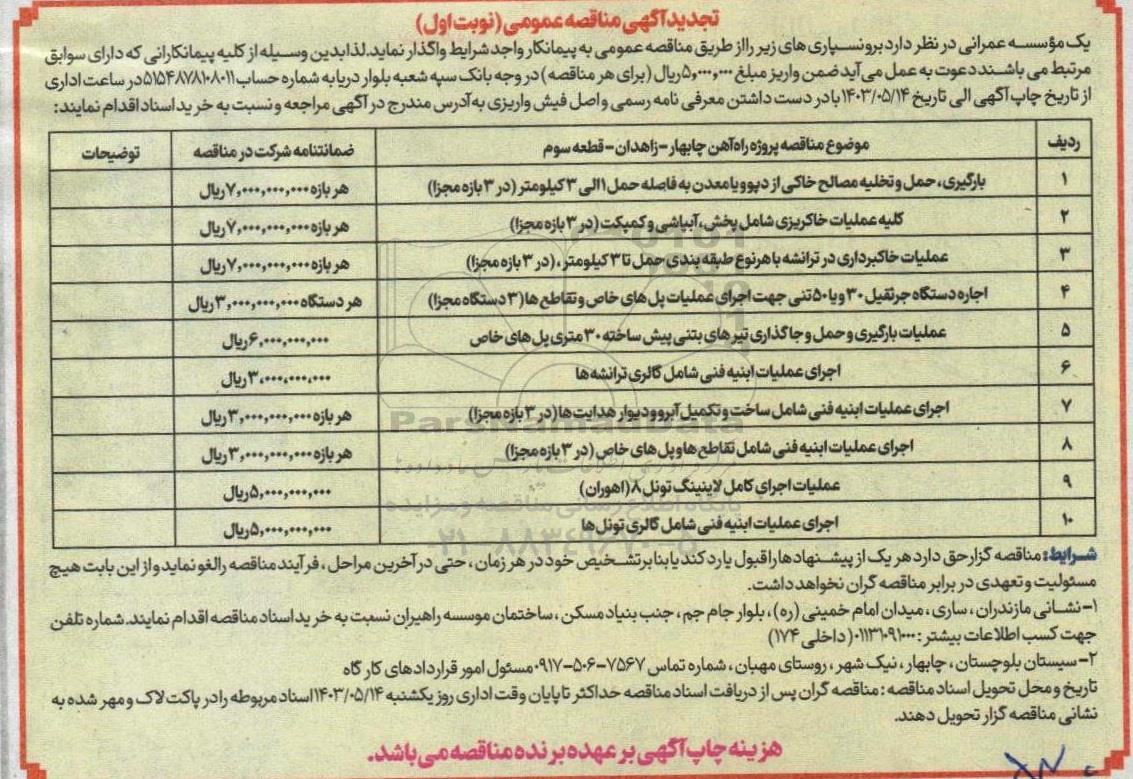 تجدید آگهی مناقصه عمومی (نوبت اول)
یک مؤسسه عمرانی در نظر دارد برونسپاری های زیر را از طریق مناقصه عمومی به پیمانکار واجد شرایط واگذار نماید. لذا بدین وسیله از کلیه پیمانکارانی که دارای سوابق
مرتبط می باشند دعوت به عمل می آید ضمن واریز مبلغ ۵,۰۰۰,۰۰۰ ریال (برای هر مناقصه) در وجه بانک سپه شعبه بلوار دریا به شماره حساب ۵۱۵۴۸۷۸۱۰۸۰۱۱ در ساعت اداری
از تاریخ چاپ آگهی الی تاریخ ۱۴۰۳/۰۵/۱۴ با در دست داشتن معرفی نامه رسمی و اصل فیش واریزی به آدرس مندرج در آگهی مراجعه و نسبت به خرید اسناد اقدام نمایند:
ردیف موضوع مناقصه پروژه راه آهن چابهار - زاهدان - قطعه سوم ضمانتنامه شرکت در مناقصه توضیحات
۱ بارگیری، حمل و تخلیه مصالح خاکی از دپو و یا معدن به فاصله حمل ۱ الی ۳ کیلومتر (در ۳ بازه مجزا) هر بازه ۷,۰۰۰,۰۰۰,۰۰۰ ریال
۲ کلیه عملیات خاکریزی شامل پخش، آبپاشی و کمپکت (در ۳ بازه مجزا) هر بازه ۷,۰۰۰,۰۰۰,۰۰۰ ریال
۳ عملیات خاکبرداری در ترانشه با هر نوع طبقه بندی حمل تا ۳ کیلومتر، (در ۳ بازه مجزا) هر بازه ۷,۰۰۰,۰۰۰,۰۰۰ ریال
۴ اجاره دستگاه جرثقیل ۳۰ و یا ۵۰ تنی جهت اجرای عملیات پل های خاص و تقاطع ها (۳ دستگاه مجزا) هر دستگاه ۳,۰۰۰,۰۰۰,۰۰۰ ریال
۵ عملیات بارگیری و حمل و جاگذاری تیر های بتنی پیش ساخته ۳۰ متری پل های خاص ۶,۰۰۰,۰۰۰,۰۰۰ ریال
۶ اجرای عملیات ابنیه فنی شامل گالری ترانشه ها ۳,۰۰۰,۰۰۰,۰۰۰ ریال
۷ اجرای عملیات ابنیه فنی شامل ساخت و تکمیل آبرو و دیوار هدایت ها (در ۳ بازه مجزا) هر بازه ۳,۰۰۰,۰۰۰,۰۰۰ ریال
۸ اجرای عملیات ابنیه فنی شامل تقاطع ها و پل های خاص (در ۳ بازه مجزا) هر بازه ۳,۰۰۰,۰۰۰,۰۰۰ ریال
۹ عملیات اجرای کامل لاینینگ تونل ۸ (اهوران) ۵,۰۰۰,۰۰۰,۰۰۰ ریال
۱۰ اجرای عملیات ابنیه فنی شامل گالری تونل ها ۵,۰۰۰,۰۰۰,۰۰۰ ریال
ParsNamadData
پایگاه اطلاع رسانی مناقصه و مزایده
شرایط: مناقصه گزار حق دارد هر یک از پیشنهادها را قبول یا رد کند یا بنابر تشخیص خود در هر زمان، حتی در آخرین مراحل، فرآیند مناقصه را لغو نماید و از این بابت هیچ
مسئولیت و تعهدی در برابر مناقصه گران نخواهد داشت.
۱- نشانی مازندران، ساری، میدان امام خمینی (ره)، بلوار جام جم، جنب بنیاد مسکن، ساختمان موسسه راهیران نسبت به خرید اسناد مناقصه اقدام نمایند. شماره تلفن
جهت کسب اطلاعات بیشتر: ۰۱۱۳۱۰۹۱۰۰۰ (داخلی ۱۷۴)
۲- سیستان بلوچستان، چابهار، نیک شهر، روستای مهبان، شماره تماس ۷۵۶۷-۵۰۶-۰۹۱۷ مسئول امور قراردادهای کارگاه
تاریخ و محل تحویل اسناد مناقصه: مناقصه گران پس از دریافت اسناد مناقصه حداکثر تا پایان وقت اداری روز یکشنبه ۱۴۰۳/۰۵/۱۴ اسناد مربوطه را در پاکت لاک و مهر شده به
نشانی مناقصه گزار تحویل دهند.
هزینه چاپ آگهی بر عهده برنده مناقصه می باشد.